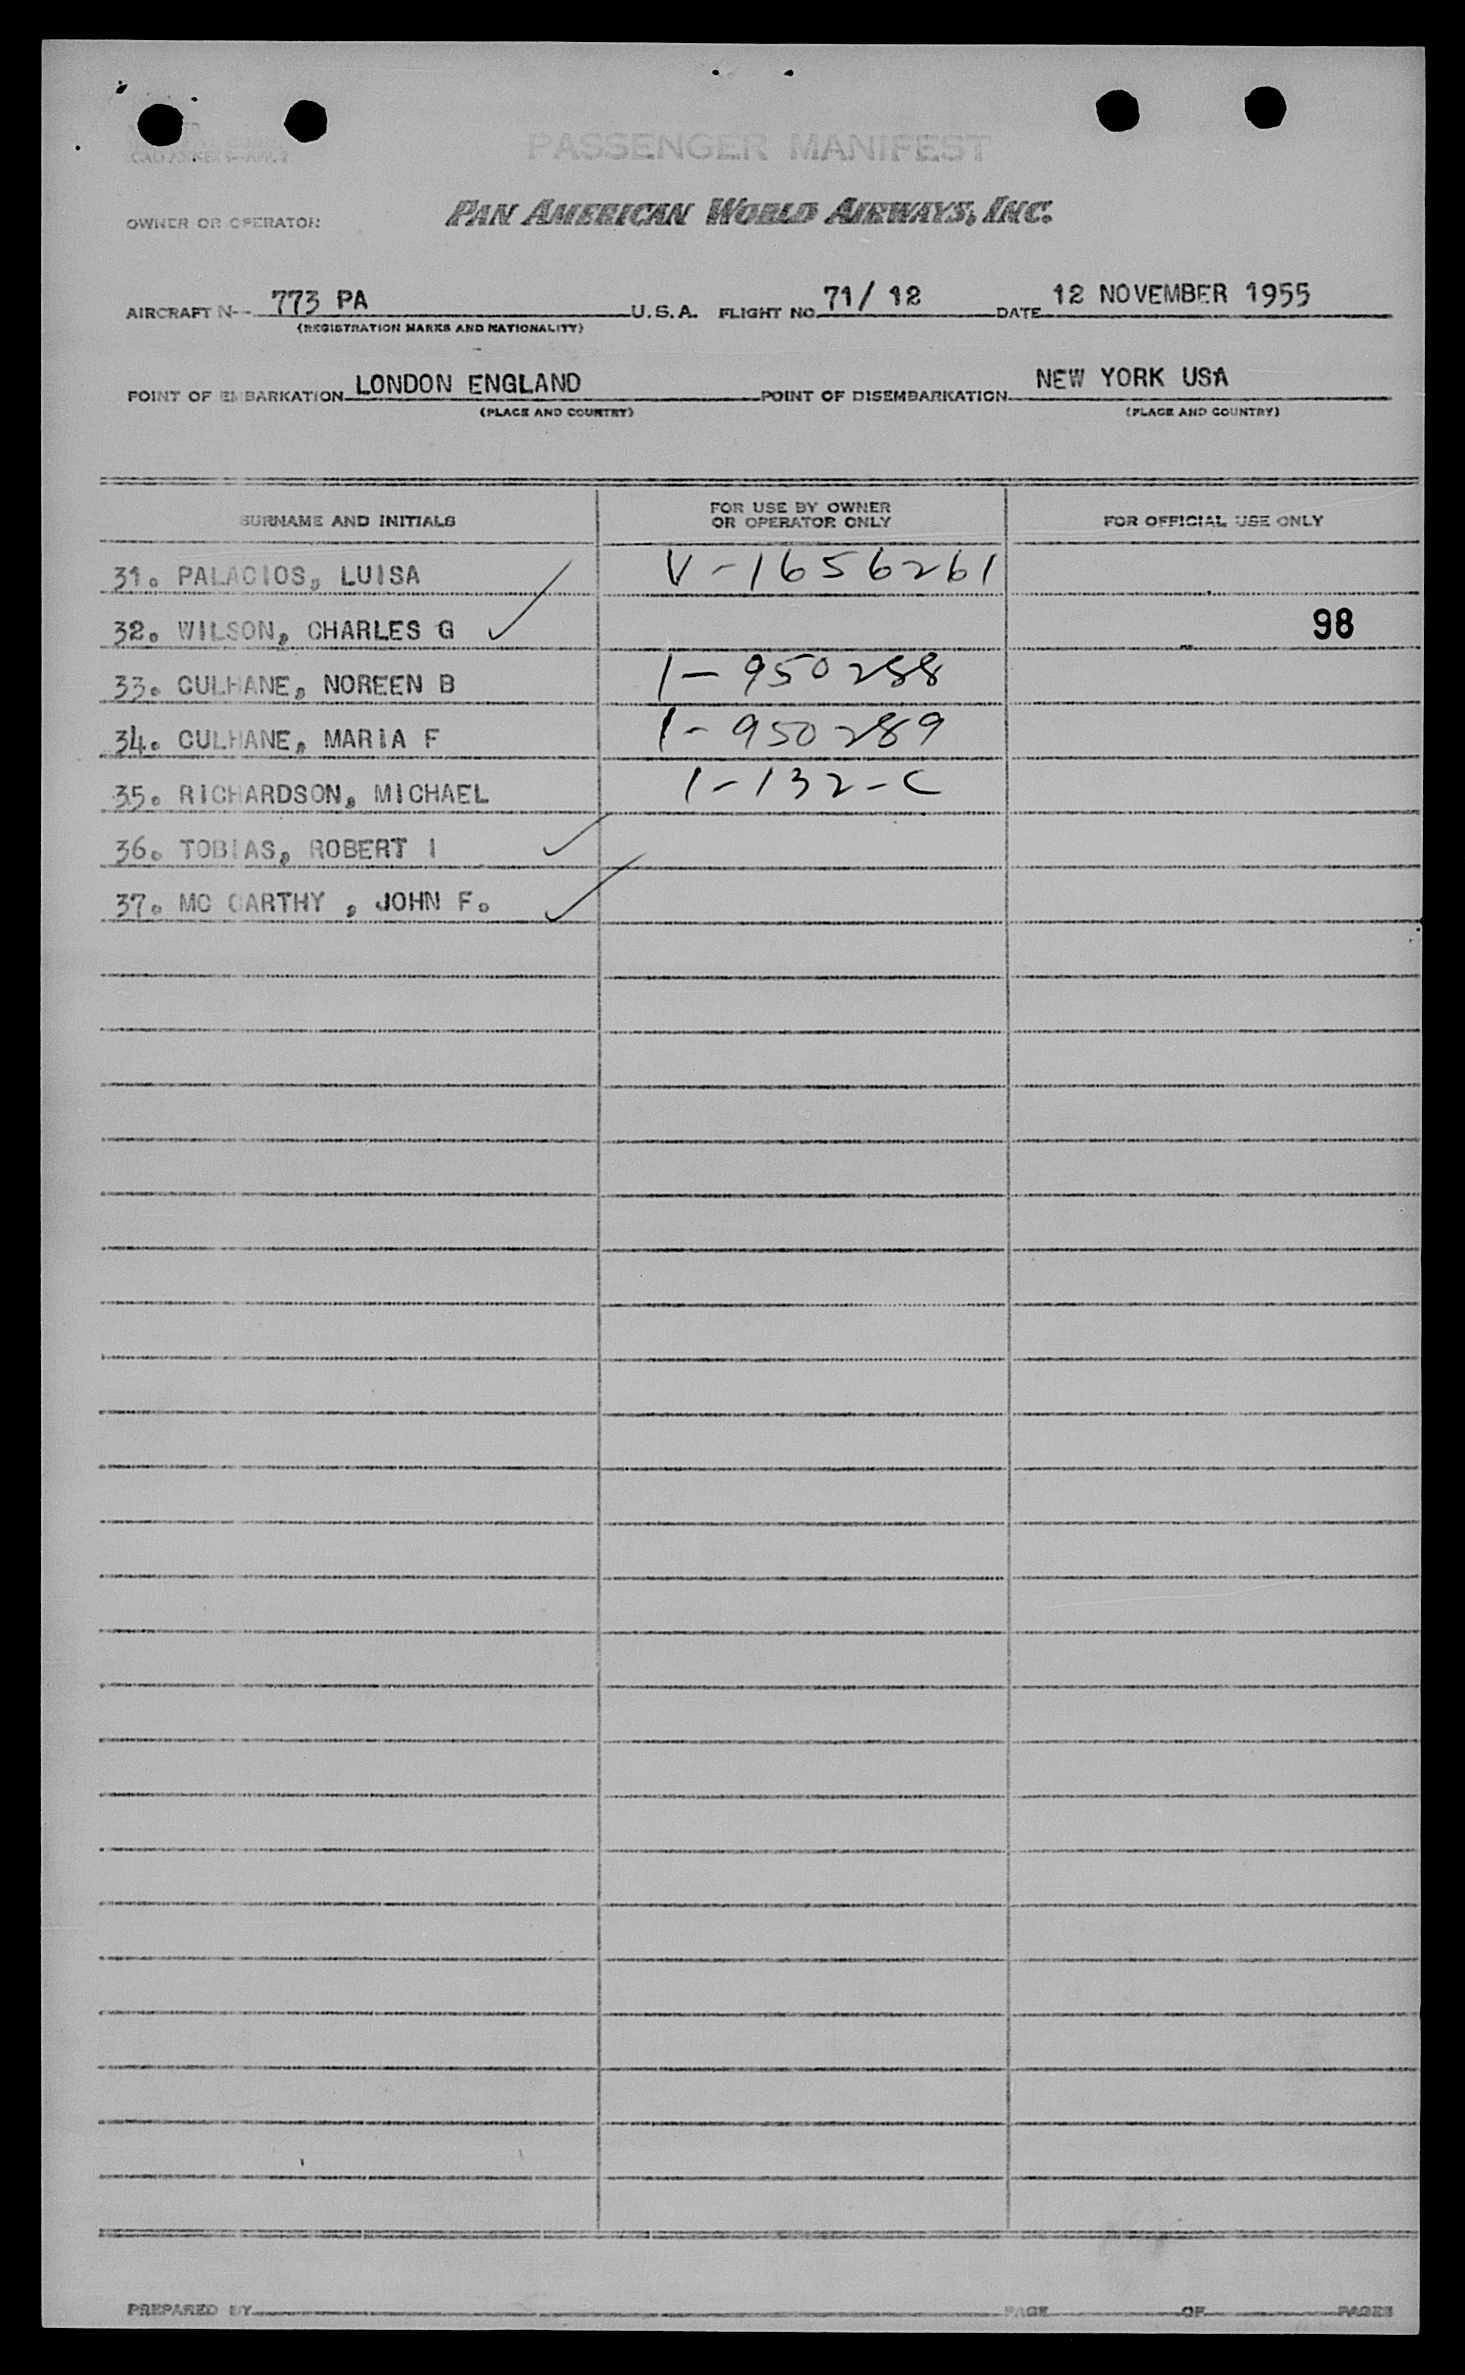 PASSENGER MANIFEST
OWNER OR OPERATOR PAN AMERICAN WORLD AIRWAYS, INC.
AIRCRAFT N- 773 PA U.S.A. FLIGHT NO. 71/ 12 DATE 12 NOVEMBER 1955
(REGISTRATION MARKS AND NATIONALITY)
POINT OF EMBARKATION LONDON ENGLAND POINT OF DISEMBARKATION NEW YORK USA
(PLACE AND COUNTRY) (PLACE AND COUNTRY)
SURNAME AND INITIALS FOR USE BY OWNER OR OPERATOR ONLY FOR OFFICIAL USE ONLY
31. PALACIOS, LUISA V-1656261
32. WILSON, CHARLES G 98
33. CULHANE, NOREEN B 1-950288
34. CULHANE, MARIA F 1-950289
35. RICHARDSON, MICHAEL 1-132-C
36. TOBIAS, ROBERT I
37. MC CARTHY , JOHN F.
PREPARED BY PAGE OF PAGES